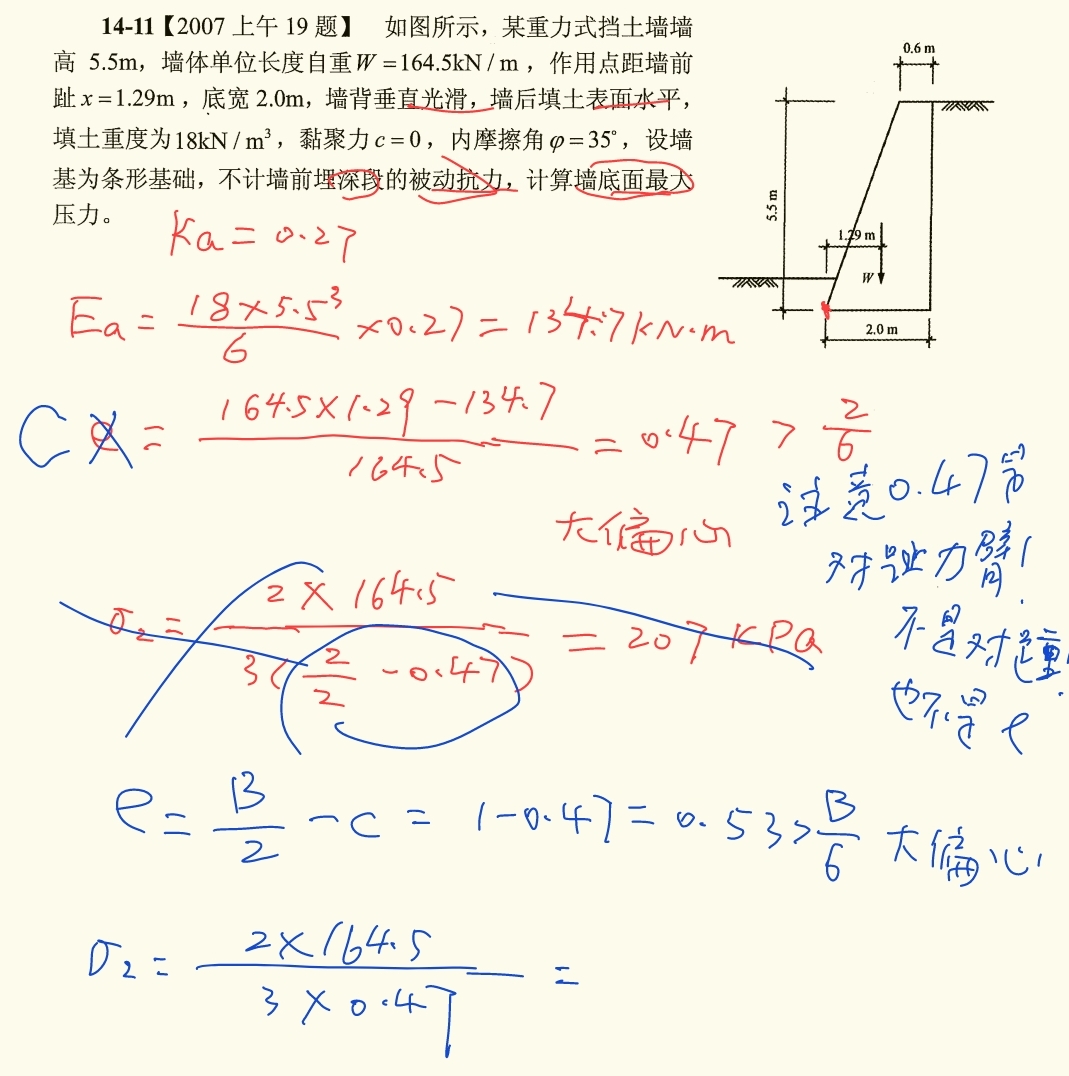 14-11【2007 上午 19 题】 如图所示，某重力式挡土墙墙
高 5.5m，墙体单位长度自重W=164.5kN/m，作用点距墙前
趾x=1.29m，底宽 2.0m，墙背垂直光滑，墙后填土表面水平，
填土重度为18kN/m³，黏聚力c=0，内摩擦角φ=35°，设墙
基为条形基础，不计墙前埋深段的被动抗力，计算墙底面最大
压力。
0.6 m
5.5 m
1.29 m
W
2.0 m
Ka = 0.27
Ea = 18×5.5³/6 ×0.27 = 134.7 kN·m
C e = 164.5×1.29-134.7/164.5 = 0.47 > 2/6
大偏心
注意0.47带
对趾力臂!
不是对重!
也不是e
σ2 = 2×164.5/3(2/2-0.47) = 207 KPa
e = B/2 - c = 1-0.47 = 0.53 > B/6 大偏心
σ2 = 2×164.5/3×0.47 =